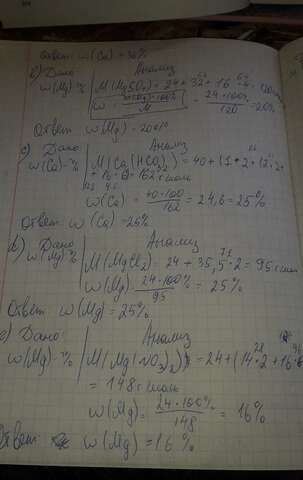 Ответ w(Ca) = 36%
б) Дано Анализ
w(Mg)-% M(MgSO₄) = 24 + 32 + 16·4 = 120
w = 24·100% / 120 = 20%
Ответ w(Mg) - 20%
с) Дано Анализ
w(Ca)-% M(Ca(HCO₃)₂) = 40 + (1·2 + 12·2 +
+ 16·6) = 162 г/моль
w(Ca) = 40·100 / 162 = 24,6 = 25%
Ответ w(Ca) = 25%
d) Дано Анализ
w(Mg)-% M(MgCl₂) = 24 + 35,5·2 = 95 г/моль
w(Mg) = 24·100% / 95 = 25%
Ответ w(Mg) = 25%
е) Дано Анализ
w(Mg)-% M(Mg(NO₃)₂) = 24 + (14·2 + 16·6
= 148 г/моль
w(Mg) = 24·100% / 148 = 16%
Ответ w(Mg) = 16%